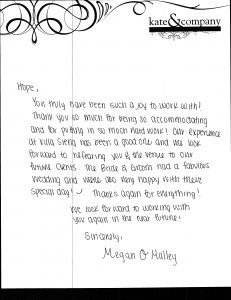 kate&company
Hope,
You truly have been such a joy to work with!
Thank you so much for being so accommodating
and for putting in so much hard work! Our experience
at Villa Siena has been a good one and we look
forward to refering you & the venue to our
future clients. The Bride & Groom had a fabulous
wedding and were also very happy with their
special day! Thanks again for everything!
We look forward to working with
you again in the near future!
Sincerely,
Megan O'Malley